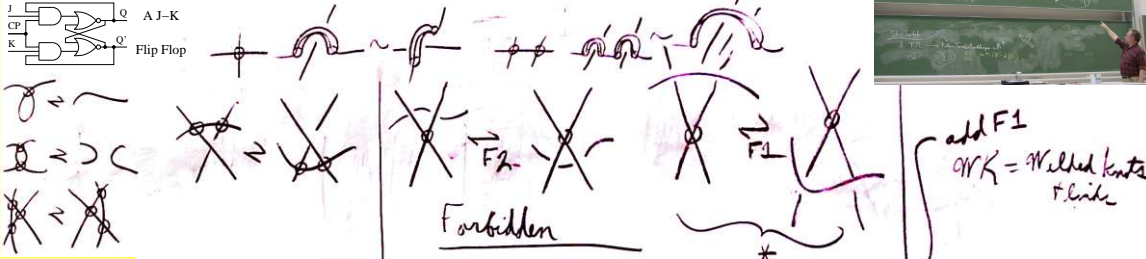 J
CP
K
Q
Q'
A J–K
Flip Flop
F2
Forbidden
F1
*
add F1
WK = Welded knots
+ links